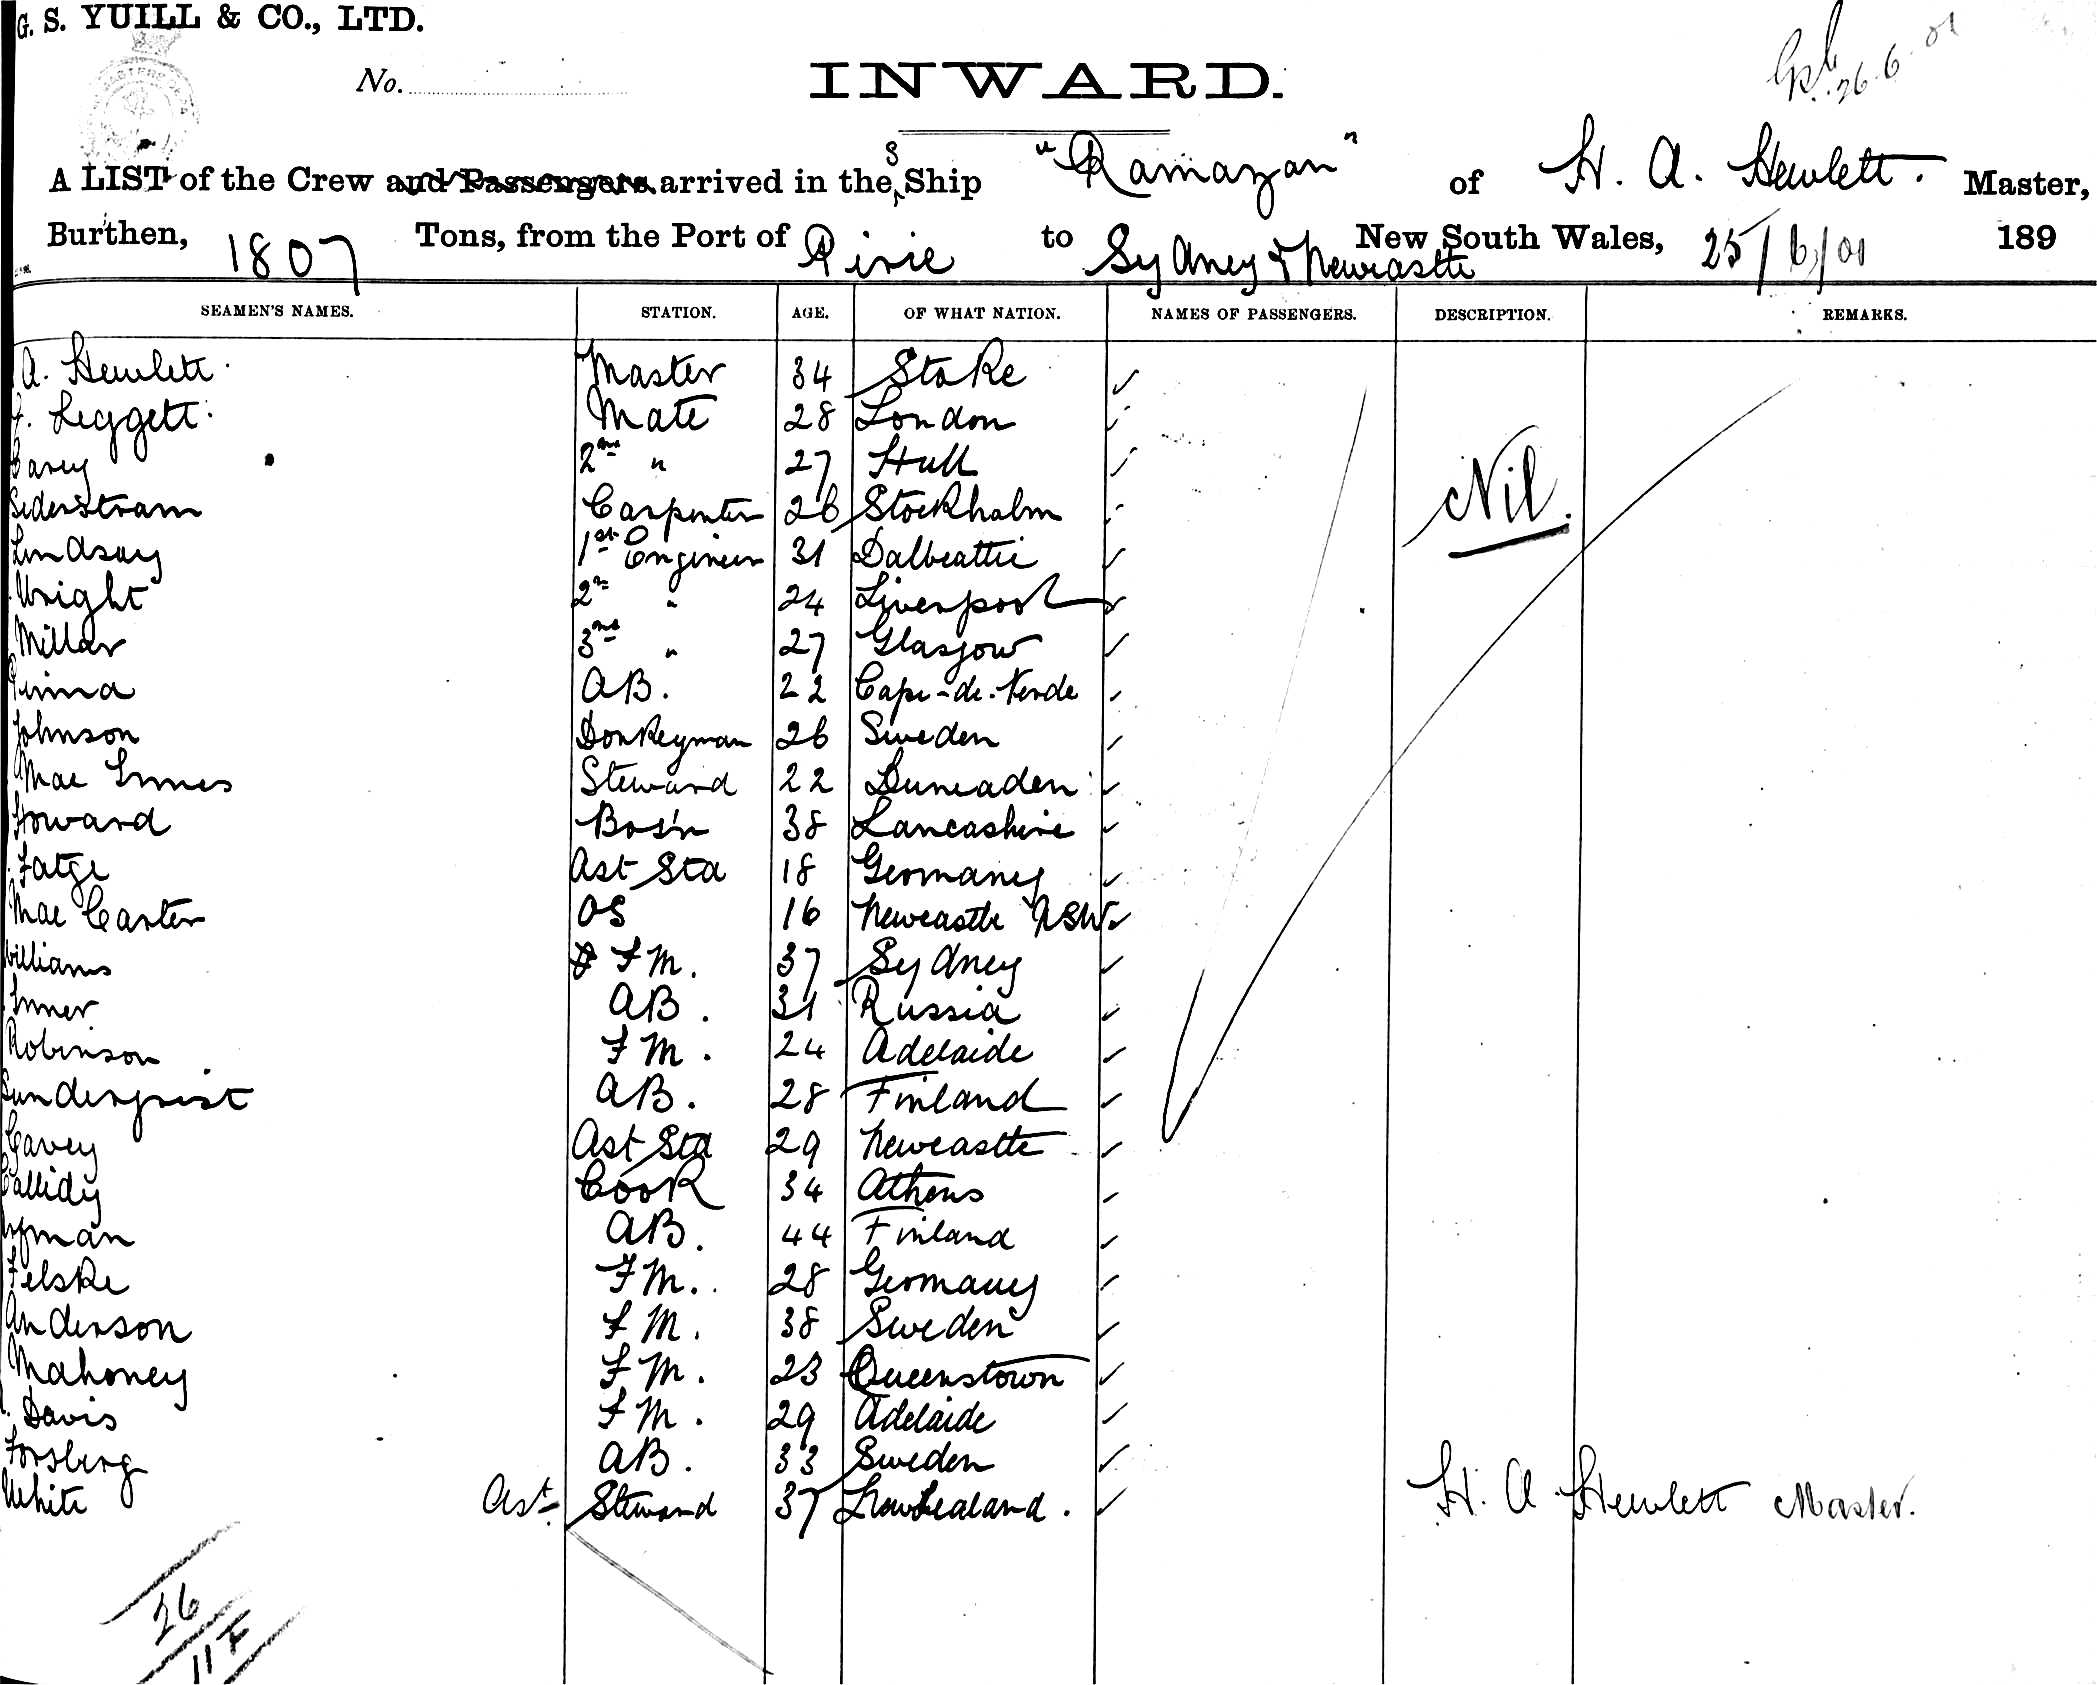 G. S. YUILL & CO., LTD.
No.
26.6.01
INWARD.
A LIST of the Crew and Passengers arrived in the S Ship "Ramazan" of H. A. Hewlett. Master,
Burthen, 1807 Tons, from the Port of Pirie to Sydney & Newcastle New South Wales, 25/6/01 189
SEAMEN'S NAMES. STATION. AGE. OF WHAT NATION. NAMES OF PASSENGERS. DESCRIPTION. REMARKS.
A. Hewlett. Master 34 Stoke
Leggett. Mate 28 London
Carey 2nd " 27 Hull
Nil.
Sederstram Carpenter 26 Stockholm
Lindsay 1st Engineer 31 Dalbeattie
Wright 2nd " 24 Liverpool
Millar 3rd " 27 Glasgow
AB. 22 Cape-de-Verde
Johnson Donkeyman 26 Sweden
Mac Innes Steward 22 Duneaden
Howard Bos'n 38 Lancashire
Fatge Ast Std 18 Germany
Mac Carter OS 16 Newcastle NSW
Williams FM. 37 Sydney
Inner AB. 31 Russia
Robinson FM. 24 Adelaide
Sunderqvist AB. 28 Finland
Cavey Ast Std 29 Newcastle
Callidy Cook 34 Athens
AB. 44 Finland
Felske FM. 28 Germany
Anderson FM. 38 Sweden
Mahoney FM. 23 Queenstown
Davis FM. 29 Adelaide
Forsberg AB. 33 Sweden
White Ast Steward 37 H. A. Hewlett Master.
26
11F